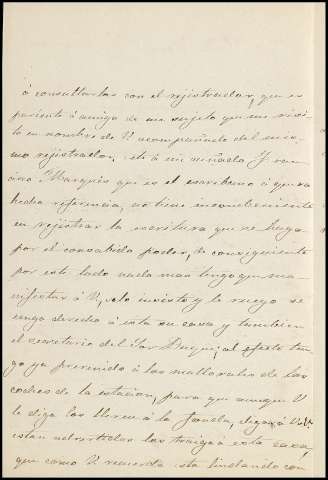 á consultarlas con el rejistrador, que es
pariente ó amigo de un sujeto que me visi-
tó en nombre de V. acompañado del mis-
mo rejistrador.
Marqués que es el escribano á quien
hecha referencia, no tiene inconveniente
en rejistrar la escritura que se haga
por el consabido poder, de consiguiente
por este lado nada mas tengo que ma-
nifestar á V., solo insisto y le ruego se
venga derecho á esta su casa y tambien
el secretario del Sor Duque; al efecto ten-
go ya prevenido á los mallorales de los
coches de la estacion, para que aunque V.
le diga los lleven á la fonda,
estan advertidos los traiga á esta casa,
que como V. recuerda esta lindando con